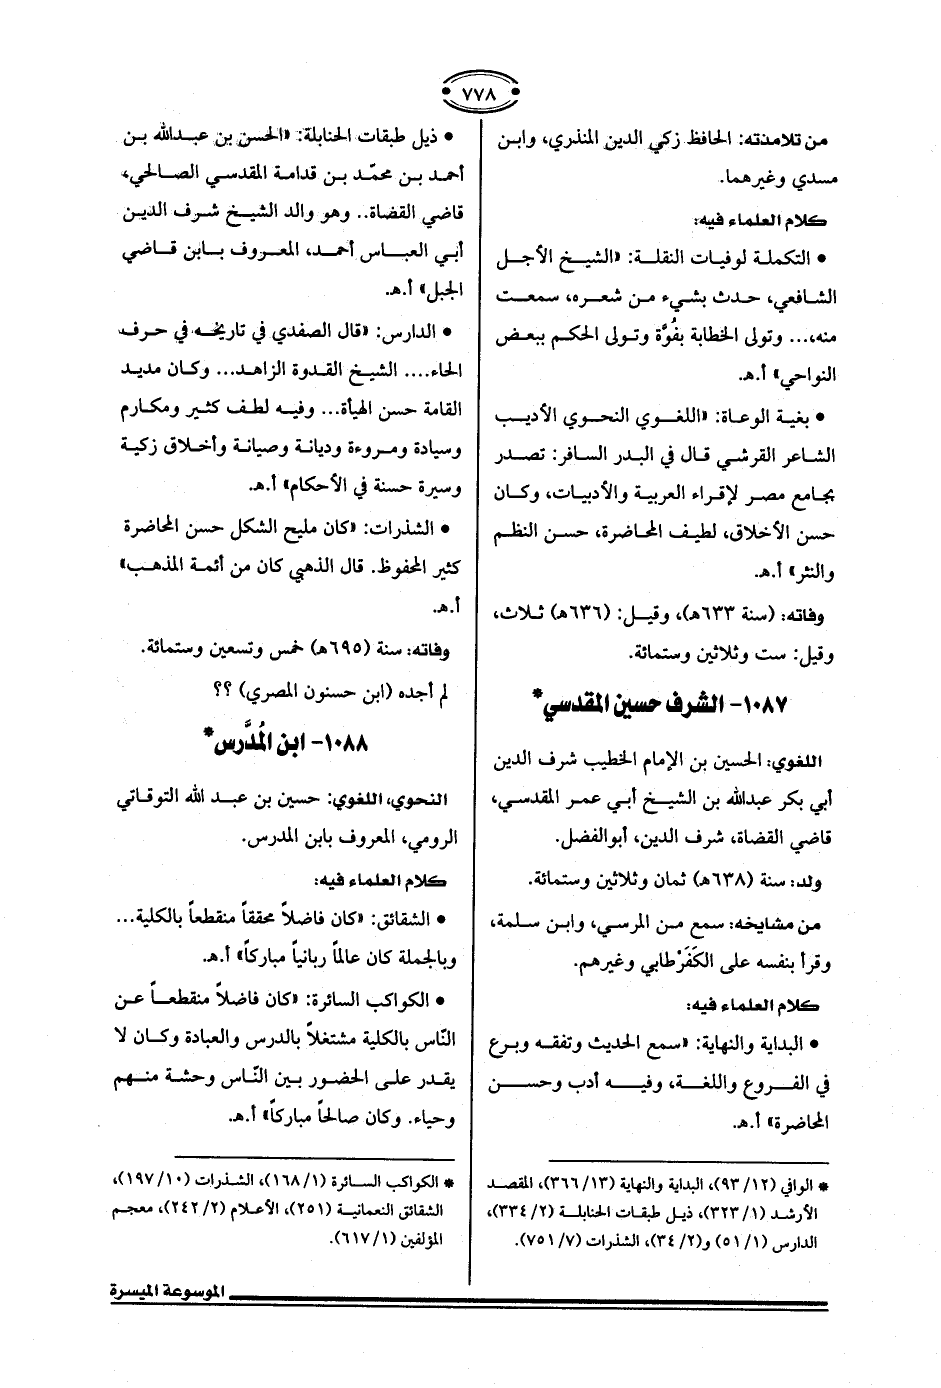 ٧٧٨
من تلامذته: الحافظ زكي الدين المنذري، وابن
مسدي وغيرهما.
كلام العلماء فيه:
• التكملة لوفيات النقلة: «الشيخ الأجل
الشافعي، حدث بشيء من شعره، سمعت
منه،... وتولى الخطابة بفُوَّة وتولى الحكم ببعض
النواحي» أ.هـ.
• بغية الوعاة: «اللغوي النحوي الأديب
الشاعر القرشي قال في البدر السافر: تصدر
بجامع مصر لإقراء العربية والأدبيات، وكان
حسن الأخلاق، لطيف المحاضرة، حسن النظم
والنثر» أ.هـ.
وفاته: (سنة ٦٣٣هـ)، وقيل: (٦٣٦هـ) ثلاث،
وقيل: ست وثلاثين وستمائة.
١٠٨٧- الشرف حسين المقدسي*
اللغوي: الحسين بن الإمام الخطيب شرف الدين
أبي بكر عبدالله بن الشيخ أبي عمر المقدسي،
قاضي القضاة، شرف الدين، أبوالفضل.
ولد: سنة (٦٣٨هـ) ثمان وثلاثين وستمائة.
من مشايخه: سمع من المرسي، وابن سلمة،
وقرأ بنفسه على الكَفَرْطابي وغيرهم.
كلام العلماء فيه:
• البداية والنهاية: «سمع الحديث وتفقه وبرع
في الفروع واللغة، وفيه أدب وحسن
المحاضرة» أ.هـ.
* الوافي (١٢/ ٩٣)، البداية والنهاية (١٣/ ٣٦٦)، المقصد
الأرشد (١/ ٣٢٣)، ذيل طبقات الحنابلة (٢/ ٣٣٤)،
الدارس (١/ ٥١) و(٢/ ٣٤)، الشذرات (٧/ ٧٥١).
• ذيل طبقات الحنابلة: «الحسن بن عبدالله بن
أحمد بن محمّد بن قدامة المقدسي الصالحي،
قاضي القضاة.. وهو والد الشيخ شرف الدين
أبي العباس أحمد، المعروف بابن قاضي
الجبل» أ.هـ.
• الدارس: «قال الصفدي في تاريخه في حرف
الحاء.... الشيخ القدوة الزاهد... وكان مديد
القامة حسن الهيأة... وفيه لطف كثير ومكارم
وسيادة ومروءة وديانة وصيانة وأخلاق زكية
وسيرة حسنة في الأحكام» أ.هـ.
• الشذرات: «كان مليح الشكل حسن المحاضرة
كثير المحفوظ. قال الذهبي كان من أئمة المذهب»
أ.هـ.
وفاته: سنة (٦٩٥هـ) خمس وتسعين وستمائة.
لم أجده (ابن حسنون المصري) ؟؟
١٠٨٨- ابن المُدَّرس*
النحوي، اللغوي: حسين بن عبد الله التوقاتي
الرومي، المعروف بابن المدرس.
كلام العلماء فيه:
• الشقائق: «كان فاضلاً محققاً منقطعاً بالكلية...
وبالجملة كان عالماً ربانياً مباركاً» أ.هـ.
• الكواكب السائرة: «كان فاضلاً منقطعاً عن
النّاس بالكلية مشتغلاً بالدرس والعبادة وكان لا
يقدر على الحضور بين النّاس وحشة منهم
وحياء. وكان صالحاً مباركاً» أ.هـ.
* الكواكب السائرة (١/ ١٦٨)، الشذرات (١٠/ ١٩٧)،
الشقائق النعمانية (٢٥١)، الأعلام (٢/ ٢٤٢)، معجم
المؤلفين (١/ ٦١٧).
الموسوعة الميسرة